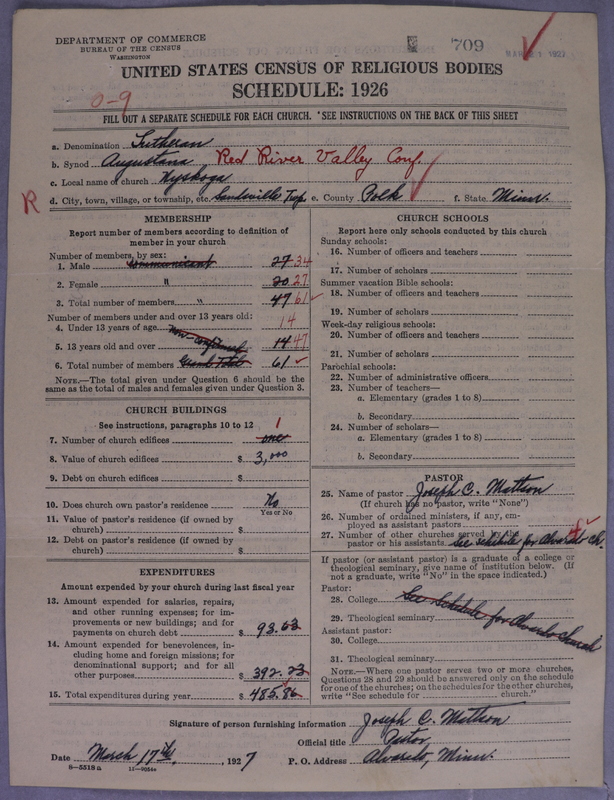 DEPARTMENT OF COMMERCE
BUREAU OF THE CENSUS
WASHINGTON
709
UNITED STATES CENSUS OF RELIGIOUS BODIES
SCHEDULE: 1926
0-9
FILL OUT A SEPARATE SCHEDULE FOR EACH CHURCH. SEE INSTRUCTIONS ON THE BACK OF THIS SHEET
a. Denomination Lutheran
b. Synod Augustana Red River Valley Conf.
c. Local name of church Nyskoga
R d. City, town, village, or township, etc. Sandsville Twp. e. County Polk f. State Minn.
MEMBERSHIP
Report number of members according to definition of member in your church
Number of members, by sex:
1. Male communicant 27 34
2. Female " 20 27
3. Total number of members " 47 61
Number of members under and over 13 years old:
4. Under 13 years of age 14
non-confirmed
5. 13 years old and over 14 47
6. Total number of members Grand Total 61
NOTE.—The total given under Question 6 should be the same as the total of males and females given under Question 3.
CHURCH BUILDINGS
See instructions, paragraphs 10 to 12
7. Number of church edifices one 1
8. Value of church edifices $ 3,000
9. Debt on church edifices $
10. Does church own pastor's residence No
Yes or No
11. Value of pastor's residence (if owned by church) $
12. Debt on pastor's residence (if owned by church) $
EXPENDITURES
Amount expended by your church during last fiscal year
13. Amount expended for salaries, repairs, and other running expenses; for improvements or new buildings; and for payments on church debt $ 93.63
14. Amount expended for benevolences, including home and foreign missions; for denominational support; and for all other purposes $ 392.23
15. Total expenditures during year $ 485.86
CHURCH SCHOOLS
Report here only schools conducted by this church
Sunday schools:
16. Number of officers and teachers
17. Number of scholars
Summer vacation Bible schools:
18. Number of officers and teachers
19. Number of scholars
Week-day religious schools:
20. Number of officers and teachers
21. Number of scholars
Parochial schools:
22. Number of administrative officers
23. Number of teachers—
a. Elementary (grades 1 to 8)
b. Secondary
24. Number of scholars—
a. Elementary (grades 1 to 8)
b. Secondary
PASTOR
25. Name of pastor Joseph C. Mattson
(If church has no pastor, write "None")
26. Number of ordained ministers, if any, employed as assistant pastors
27. Number of other churches served by the pastor or his assistants See schedule for Alvarado ch.
If pastor (or assistant pastor) is a graduate of a college or theological seminary, give name of institution below. (If not a graduate, write "No" in the space indicated.)
Pastor:
28. College See Schedule for Alvarado Church
29. Theological seminary
Assistant pastor:
30. College
31. Theological seminary
NOTE.—Where one pastor serves two or more churches, Questions 28 and 29 should be answered only on the schedule for one of the churches; on the schedules for the other churches, write "See schedule for ________ church."
Signature of person furnishing information Joseph C. Mattson
Official title Pastor
Date March 17th, 1927 P. O. Address Alvarado, Minn.
8—5518a 11—9054a